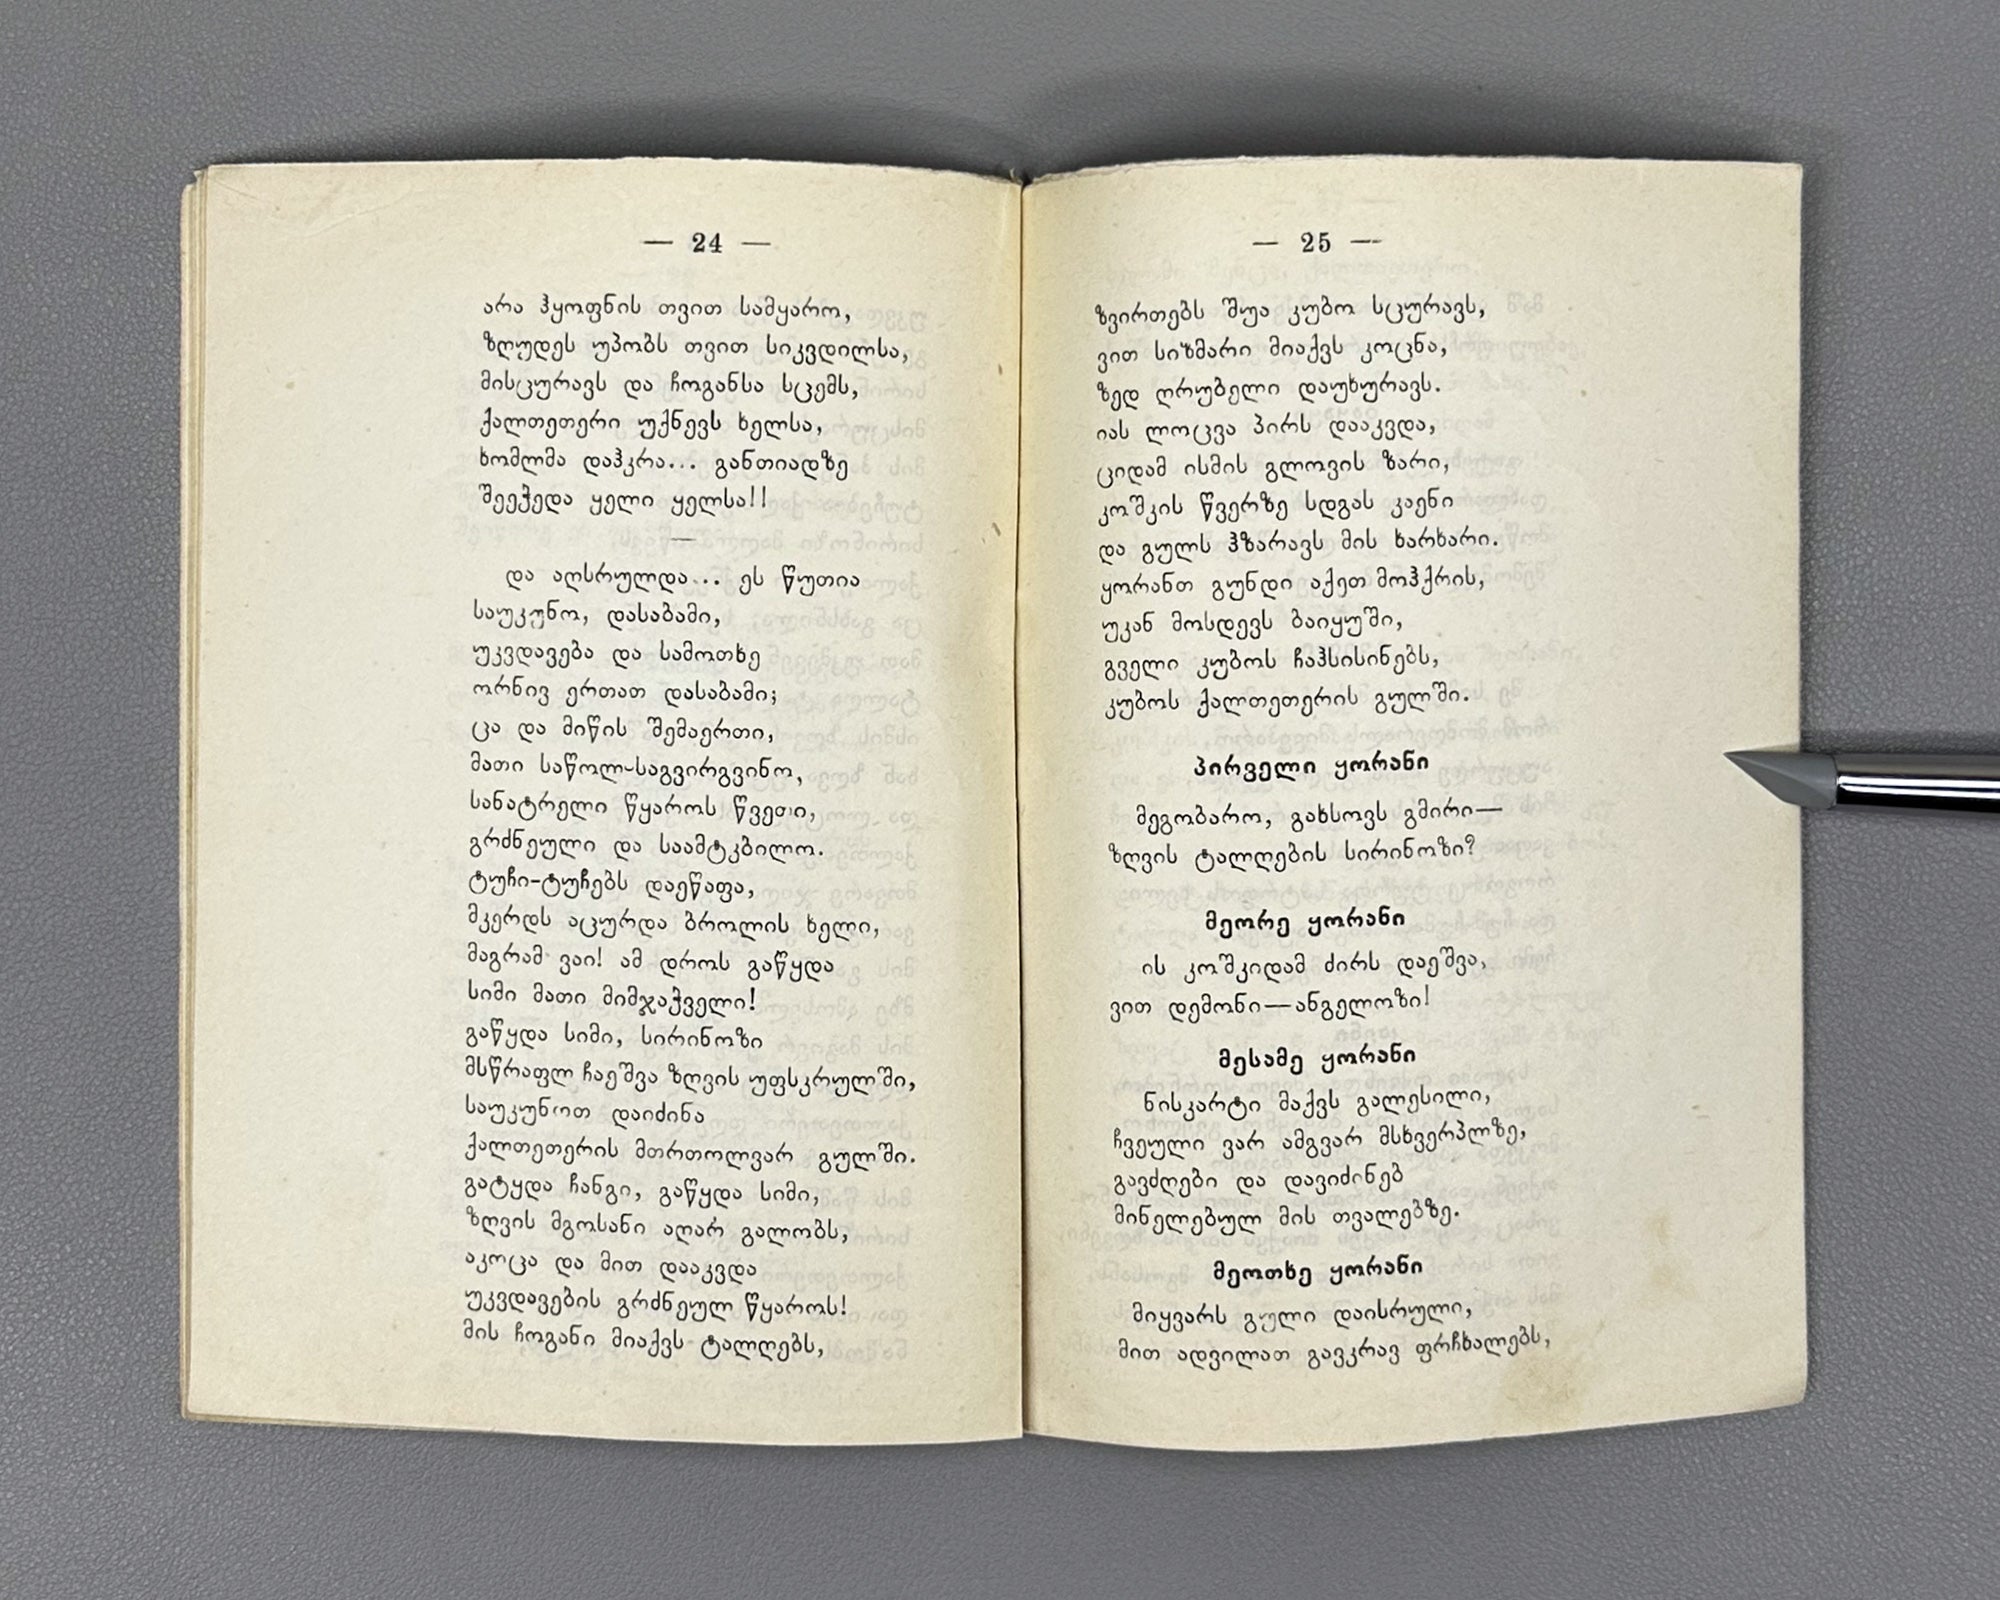 — 24 —
არა ჰყოფნის თვით სამყარო,
ზღუდეს უპობს თვით სიკვდილსა,
მისცურავს და ჩოგანსა სცემს,
ქალთეთერი უქნევს ხელსა,
ხომლმა დაჰკრა... განთიადზე
შეეჭედა ყელი ყელსა!!
და აღსრულდა... ეს წუთია
საუკუნო, დასაბამი,
უკვდავება და სამოთხე
ორნივ ერთათ დასაბამი;
ცა და მიწის შემაერთი,
მათი საწოლ-საგვირგვინო,
სანატრელი წყაროს წვეთი,
გრძნეული და საამტკბილო.
ტუჩი-ტუჩებს დაეწაფა,
მკერდს აცურდა ბროლის ხელი,
მაგრამ ვაი! ამ დროს გაწყდა
სიმი მათი მიმჯაჭველი!
გაწყდა სიმი, სირინოზი
მსწრაფლ ჩაეშვა ზღვის უფსკრულში,
საუკუნოთ დაიძინა
ქალთეთერის მთრთოლვარ გულში.
გატყდა ჩანგი, გაწყდა სიმი,
ზღვის მგოსანი აღარ გალობს,
აკოცა და მით დააკვდა
უკვდავების გრძნეულ წყაროს!
მის ჩოგანი მიაქვს ტალღებს,
— 25 —
ზვირთებს შუა კუბო სცურავს,
ვით სიზმარი მიაქვს კოცნა,
ზედ ღრუბელი დაუხურავს.
იას ლოცვა პირს დააკვდა,
ციდამ ისმის გლოვის ზარი,
კოშკის წვერზე სდგას კაენი
და გულს ჰზარავს მის ხარხარი.
ყორანთ გუნდი აქეთ მოჰქრის,
უკან მოსდევს ბაიყუში,
გველი კუბოს ჩაჰსისინებს,
კუბოს ქალთეთერის გულში.
პირველი ყორანი
მეგობარო, გახსოვს გმირი—
ზღვის ტალღების სირინოზი?
მეორე ყორანი
ის კოშკიდამ ძირს დაეშვა,
ვით დემონი—ანგელოზი!
მესამე ყორანი
ნისკარტი მაქვს გალესილი,
ჩვეული ვარ ამგვარ მსხვერპლზე,
გავძღები და დავიძინებ
მინელებულ მის თვალებზე.
მეოთხე ყორანი
მიყვარს გული დაისრული,
მით ადვილათ გავკრავ ფრჩხალებს,